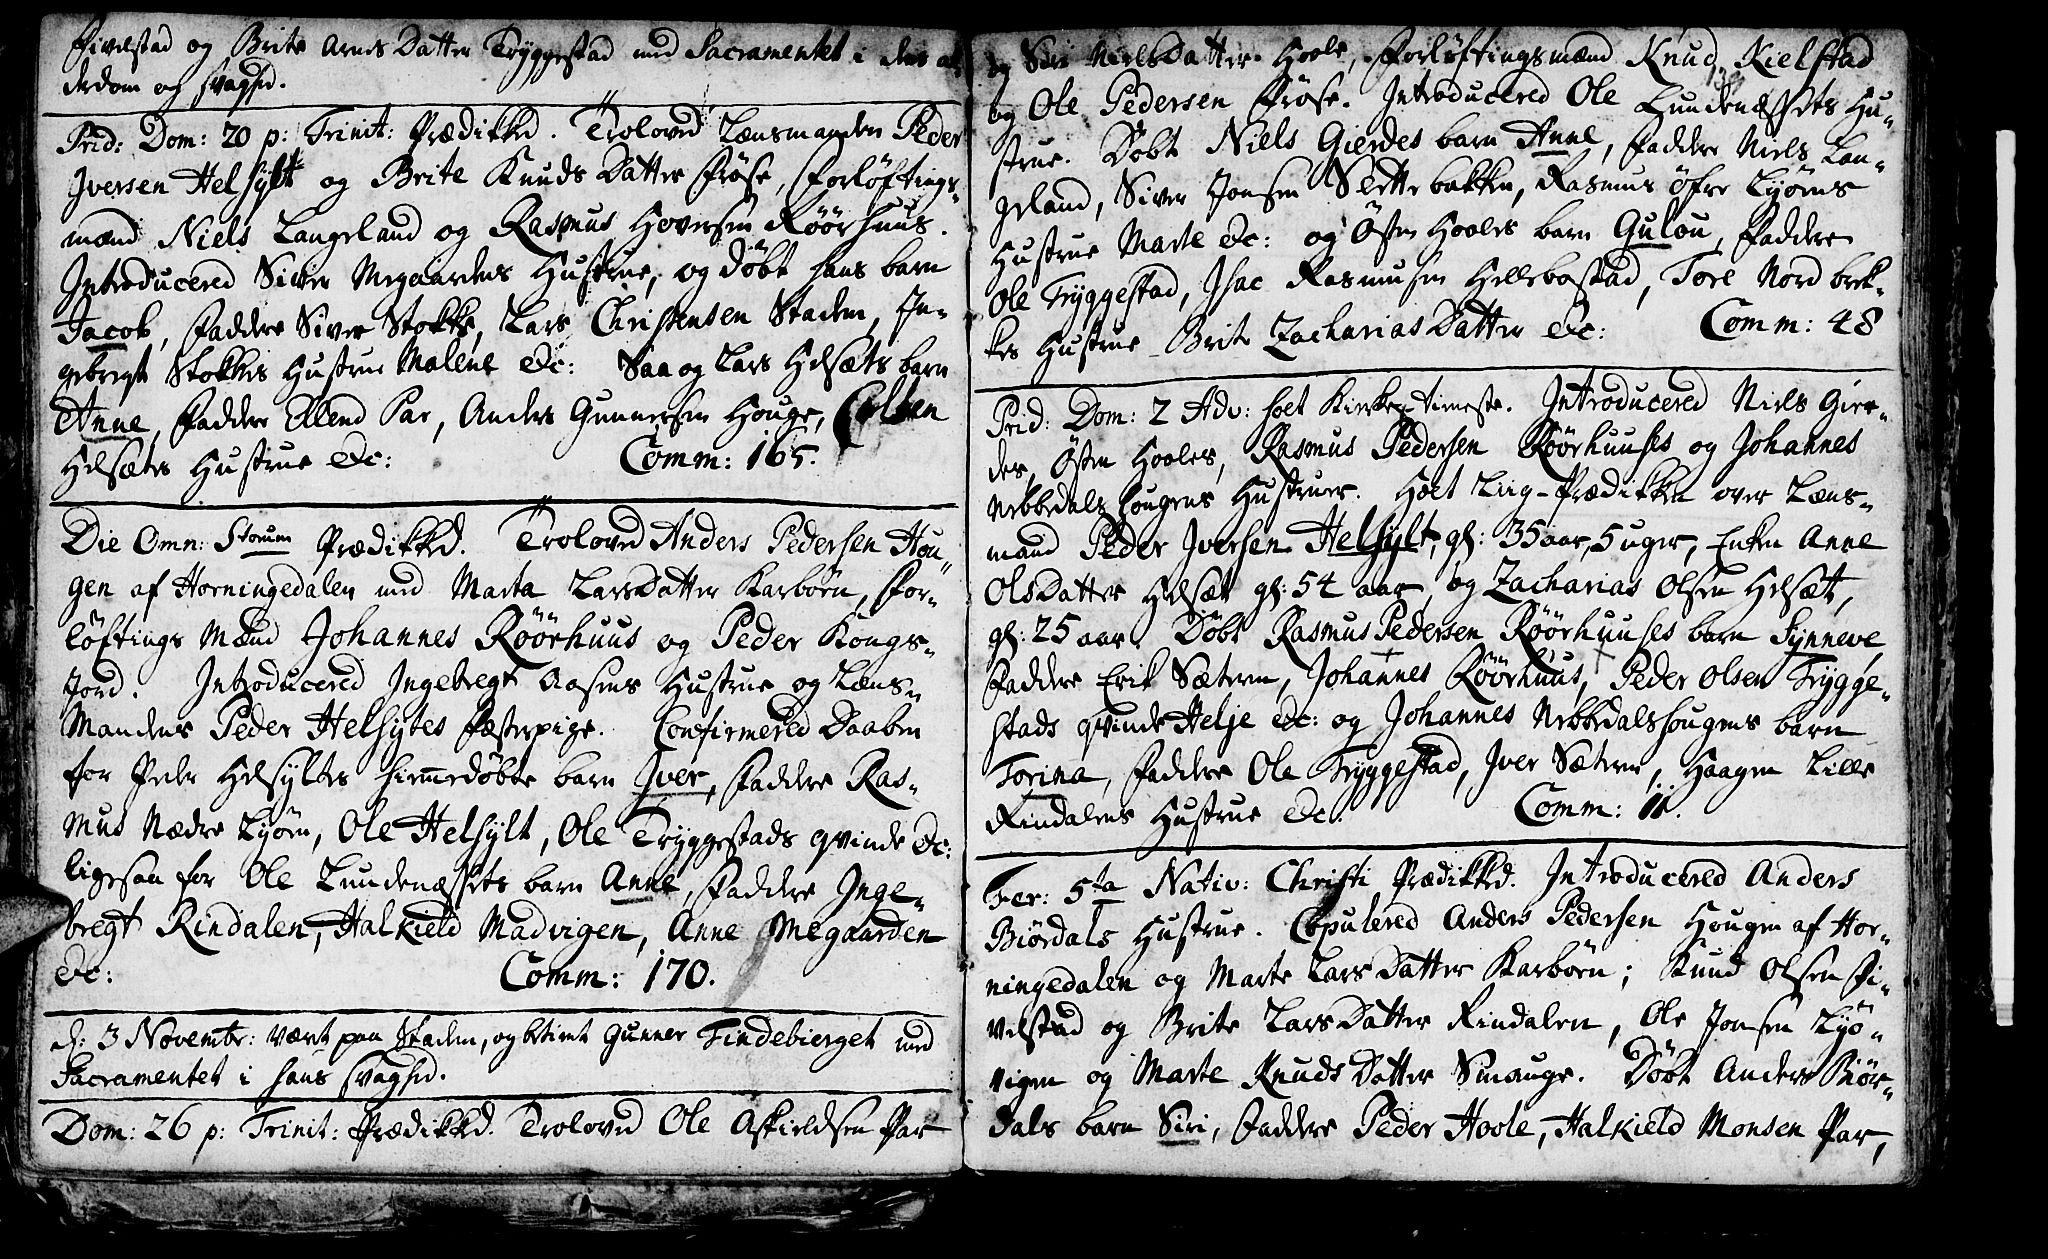 Fivelstad og Brite Arnes Datter Tryggestad med Sacramentet i den al-
derdom og svaghed.
Prid: Dom: 20 p: Trinit: Prædikked. Troloved Lænsmanden Peder
Iversen Helsylt og Brite Knuds Datter Frøse, Forløftings-
mænd Niels Langeland og Rasmus Hoversen Røørhuus.
Introducered Siver Megaardens Hustrue, og døbt hans barn
Jacob, Faddere Siver Stokke, Lars Christensen Staden, In-
gebregt Stokkes Hustrue Malene &c: Saa og Lars Helsæts barn
Anne, Faddere Ellend Par, Anders Gunnersen Houge,
Helsæts Hustrue &c: Comm: 165.
Die Omn: Storum Prædikked. Troloved Anders Pedersen Hou-
gen af Horningedalen med Marta Lars Datter Karbørn, For-
løftings Mænd Johannes Røørhuus og Peder Kongs-
Jord. Introducered Ingebregt Aasens Hustrue og Læns-
Mandens Peder Helsyltes Fæstepige. Confirmered Daaben
for Peder Helsyltes hiemmedøbte barn Iver, Faddere Ras-
mus Nædre Lyøen, Ole Helsylt, Ole Tryggestads qvinde &c:
ligesaa for Ole Lundenæssets barn Anne, Faddere Inge-
bregt Rindalen, Halkield Madvigen, Anne Megaarden
&c: Comm: 170.
d: 3 Novembr: været paa Staden, og betient Gunner Tindebierget med
Sacramentet i hans svaghed.
Dom: 26 p: Trinit: Prædikked. Troloved Ole Askieldsen Par
og Siri Niels Datter Hoole, Forløftingsmænd Knud Kielstad
og Ole Pedersen Frøse. Introducered Ole Lundenæssets Hu-
strue. Døbt Niels Gierdes barn Anne, Faddere Niels Lan-
geland, Siver Jonsen Slettebakken, Rasmus Øfre Lyøens
Hustrue Marte &c: og Østen Hooles barn Gulou, Faddere
Ole Tryggestad, Isac Rasmusen Hellebostad, Tore Nordbrek-
kes Hustrue Brite Zacharias Datter &c: Comm: 48
Prid: Dom: 2 Adv: holt Kirketieneste. Introducered Niels Gier-
des, Østen Hooles, Rasmus Pedersen Røørhuuses og Johannes
Nebbedals hougens Hustruer. Holt Liig-Prædikken over Læns-
mand Peder Iversen Helsylt, gl: 35 aar, 5 uger, Enken Anne
Ols Datter Helsæt gl: 54 aar, og Zacharias Olsen Helsæt,
gl: 25 aar. Døbt Rasmus Pedersen Røørhuuses barn Synneve,
Faddere Erik Sæteren, Johannes Røørhuus, Peder Olsen Trygge-
stads qvinde Helje &c: og Johannes Nebbedalshougens barn
Torina, Faddere Ole Tryggestad, Iver Sæteren, Haagen Lille
Rindalens Hustrue &c. Comm: 11.
Fer: 5ta Nativ: Christi Prædikked. Introducered Anders
Biørdals Hustrue. Copulered Anders Pedersen Hougen af Hor-
ningedalen og Marte Lars Datter Karbørn; Knud Olsen Fi-
velstad og Brite Lars Datter Rindalen, Ole Jonsen Lyø-
vigen og Marte Knuds Datter Smauge. Døbt Anders Biør-
dals barn Siri, Faddere Peder Hoole, Halkield Monsen Par,